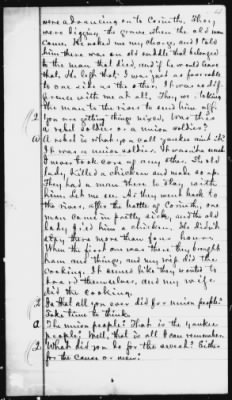 were advancing on to Corinth. They
were digging the grave when the old man
came. He asked me my charge, and I told
him there was an old saddle that belonged
to the man that died, and if he would leave
that. He left that. I was just as favorable
to one side as the other. It was no dif-
ference with me at all. They
the man to the river to send him off.
Q You are getting things mixed. Was this
a rebel soldier or a union soldier?
A A rebel is what you call yankee aint it?
It was a union soldier. It wasn't much
I never took care of any other. The old
lady killed a chicken and made soup.
They had a man there to stay with
him. Let me see. As they went back to
the river, after the battle of Corinth, one
man came in pretty sick, and the old
lady fried him a chicken. He didn't
stay there more than four hours.
When the first one was there they brought
ham and things, and my wife did the
cooking. It seemed like they wanted to
board themselves, and my wife
did the cooking.
Q Is that all you ever did for union people?
Take time to think.
A The union people? That is the yankee
people? Well, that is all I can remember.
Q What did you do for the secesh? Either
for the cause or men?